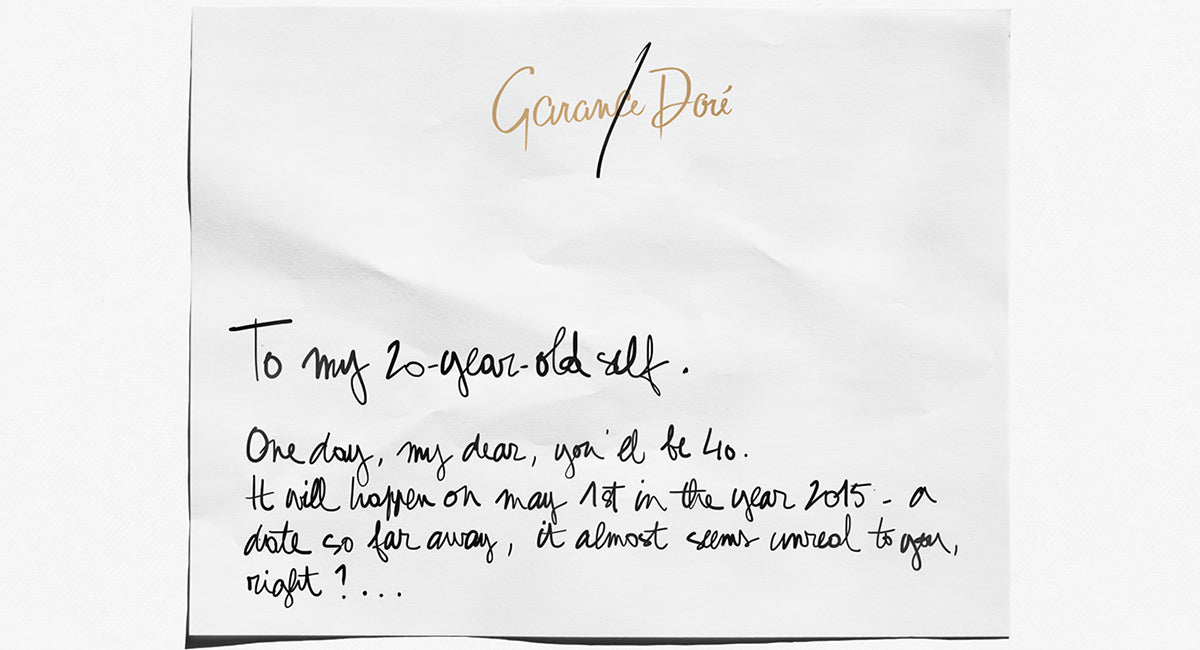 Garance Doré
To my 20-year-old self.
One day, my dear, you'll be 40.
It will happen on may 1st in the year 2015 - a
date so far away, it almost seems unreal to you,
right ? ...